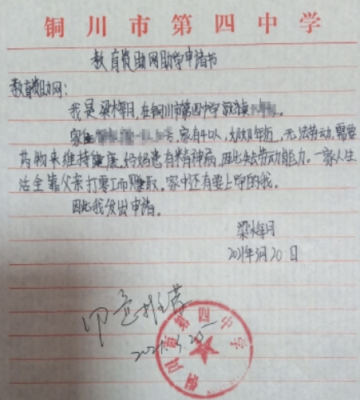 铜川市第四中学
教育资助网助学申请书
教育资助网:
我是梁梅月,在铜川市第四中学就读
家住 号,家有4口人,奶奶年迈,无法劳动,需要
药物来维持健康,给妈患有精神病,因此失去劳动能力。一家人生
活全靠父亲打零工而赚取。家中还有要上学的我。
因此我发出申请。
梁梅月
2021年3月20日
同意推荐
2021.3.20
铜川市第四中学